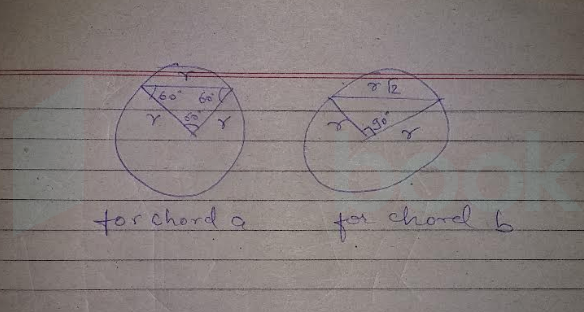 r
60° 60°
r 60° r
for chord a
r√2
r 90° r
for chord b